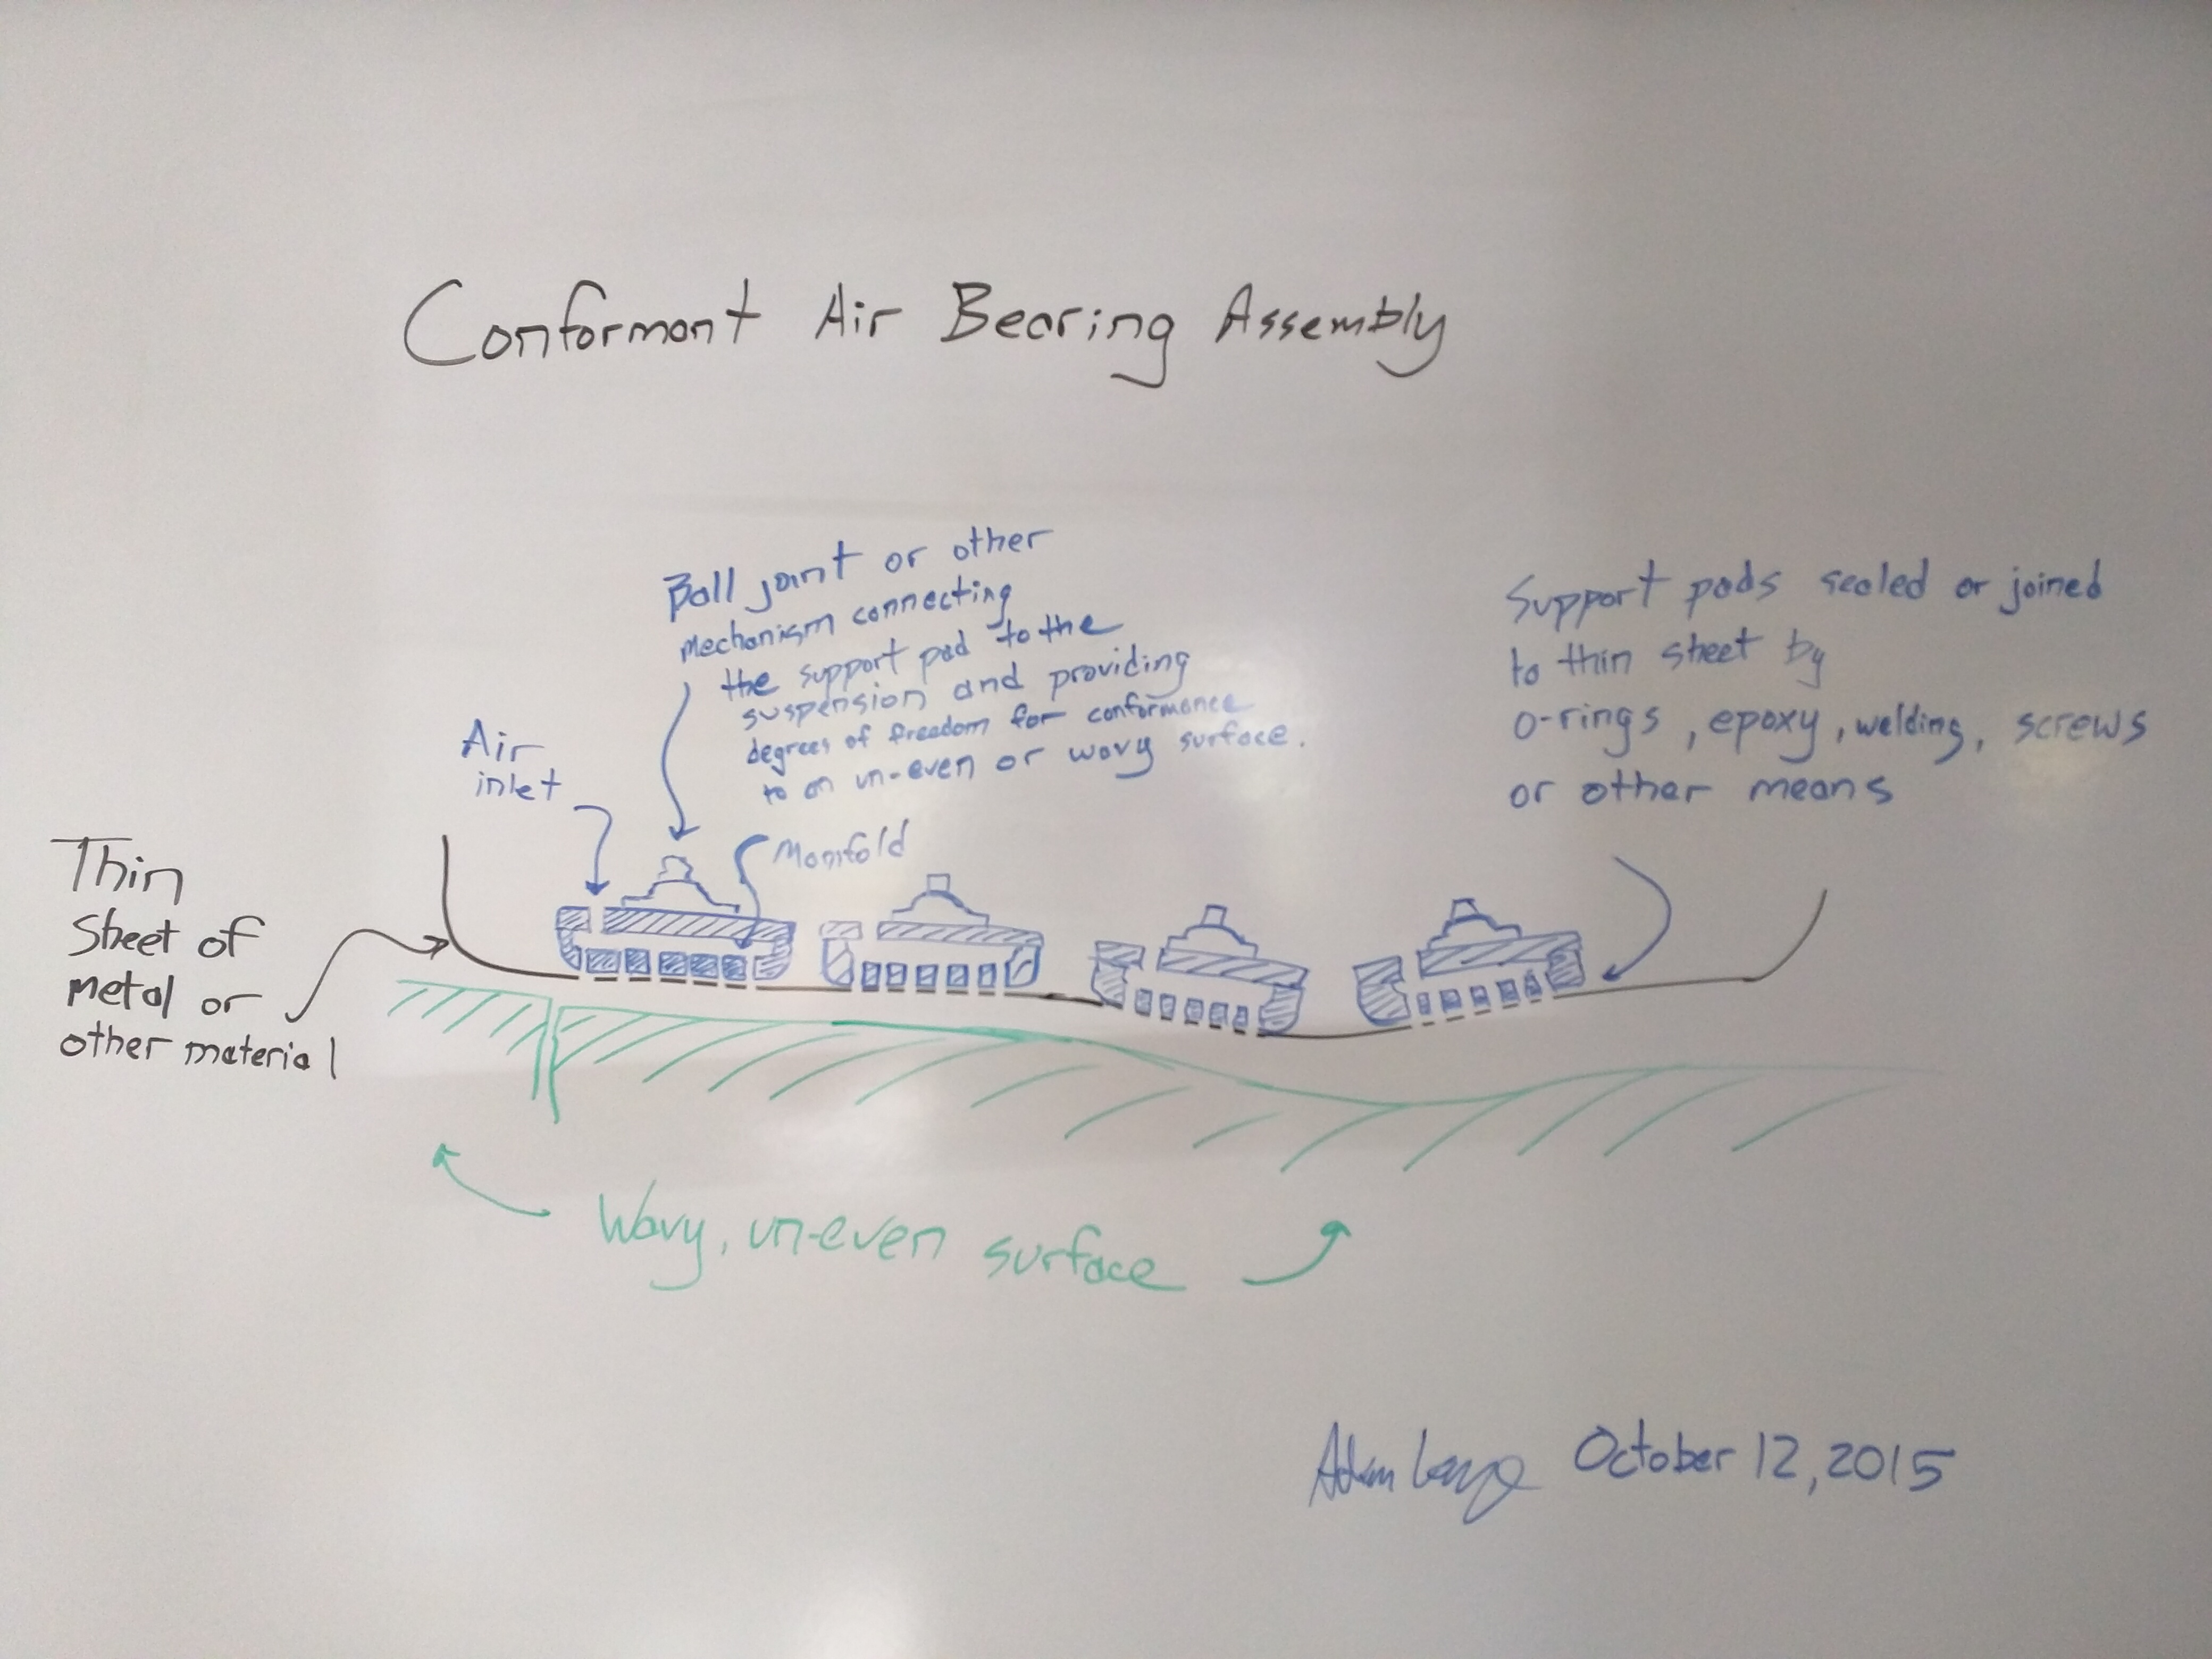 Conformant Air Bearing Assembly
Ball joint or other
mechanism connecting
the support pad to the
suspension and providing
degrees of freedom for conformance
to an un-even or wavy surface.
Support pads sealed or joined
to thin sheet by
o-rings, epoxy, welding, screws
or other means
Air
inlet
Manifold
Thin
Sheet of
metal or
other material
Wavy, un-even surface
Adam October 12, 2015